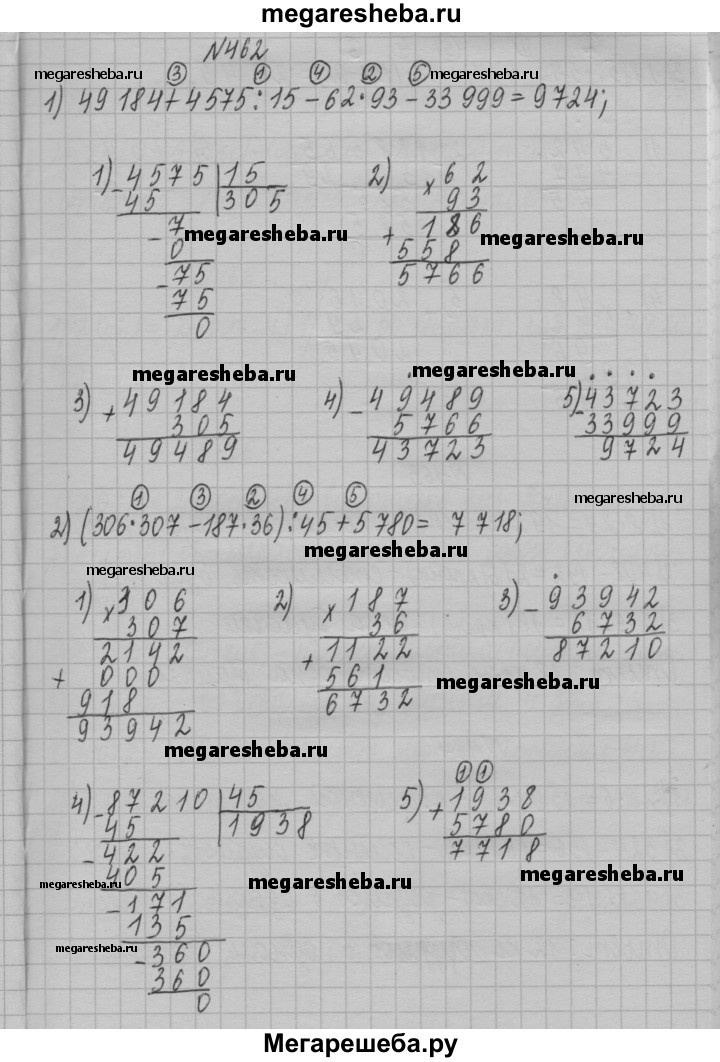 megaresheba.ru
N462
megaresheba.ru ③ ① ④ ② ⑤ megaresheba.ru
1) 49 184+4575:15-62·93-33 999=9724;
1) 4575 | 15
- 45 305
- 7
0
- 75
75
0
2) × 62
93
+ 186
558
5766
megaresheba.ru
megaresheba.ru
megaresheba.ru
megaresheba.ru
3) + 49184
305
49489
4) - 49489
5766
43723
5) - 43723
33999
9724
megaresheba.ru
① ③ ② ④ ⑤
2) (306·307-187·36):45+5780= 7718;
megaresheba.ru
megaresheba.ru
1) × 306
307
2142
+ 000
918
93942
2) × 187
36
+ 1122
561
6732
3) - 93942
6732
87210
megaresheba.ru
megaresheba.ru
4) - 87210 | 45
45 1938
- 422
405
- 171
135
- 360
360
0
① ①
5) + 1938
5780
7718
megaresheba.ru
megaresheba.ru
megaresheba.ru
megaresheba.ru
Мегарешеба.ру